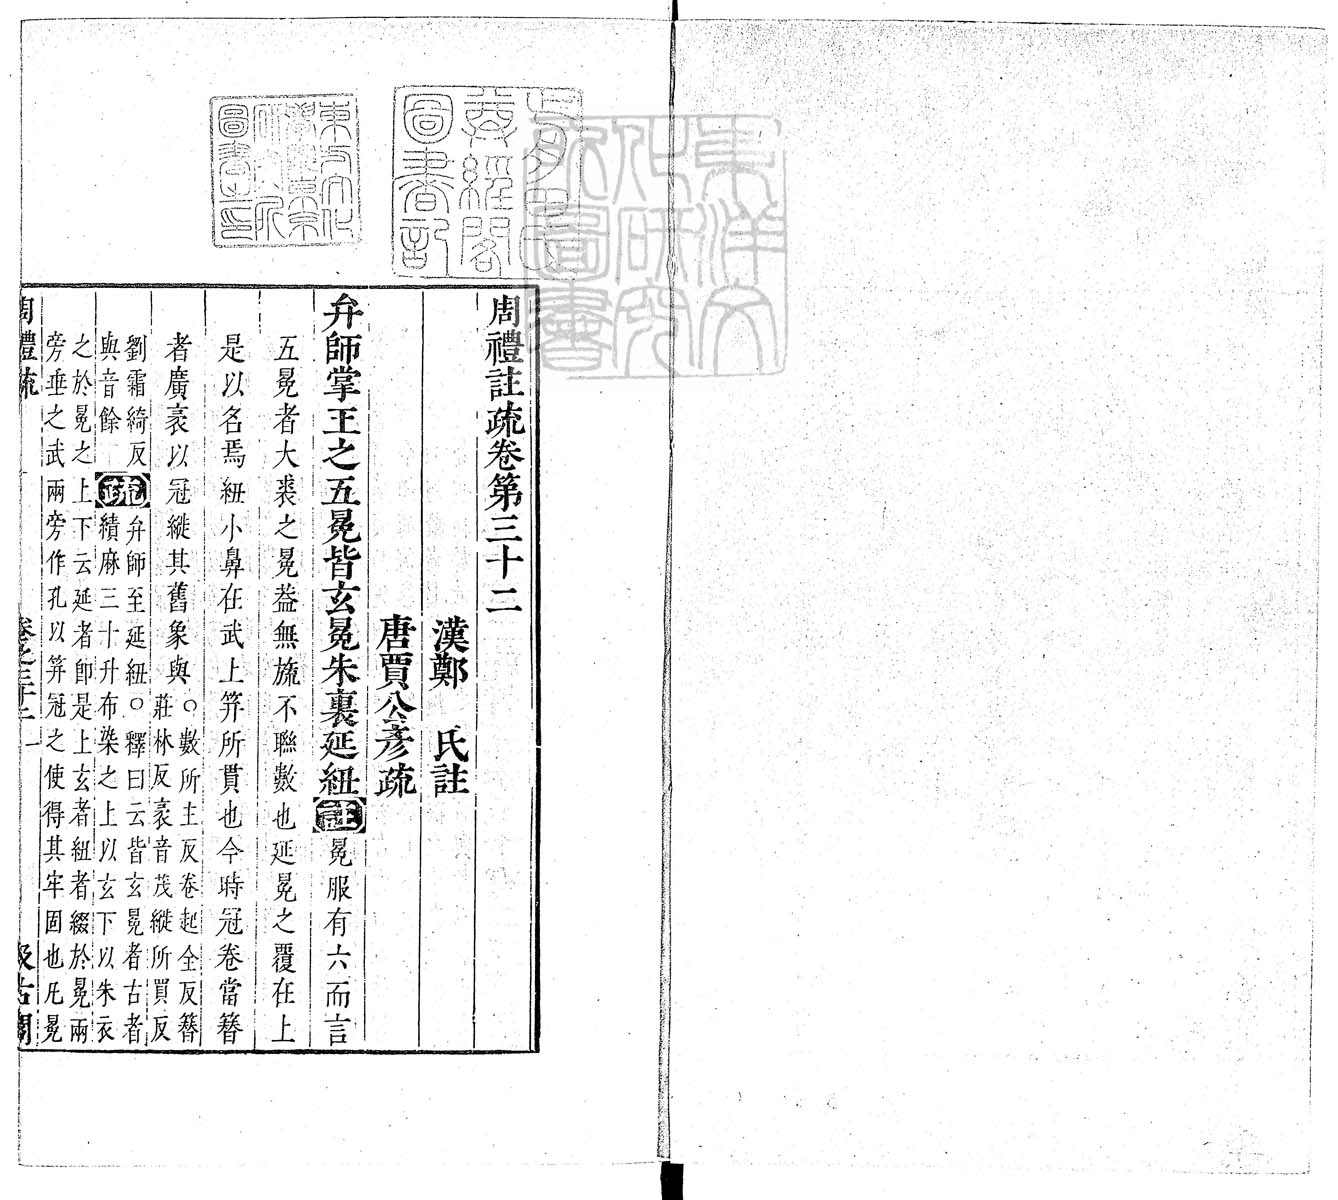 周禮註疏卷第三十二
漢鄭 氏註
唐賈公彥疏
弁師掌王之五冕皆玄冕朱裏延紐註冕服有六而言
五冕者大裘之冕葢無旒不聯數也延冕之覆在上
是以名焉紐小鼻在武上笄所貫也今時冠卷當簪
者廣袤以冠縰其舊象與○數所主反卷起全反簪
莊林反袤音茂縰所買反
劉霜綺反
與音餘
疏弁師至延紐○釋曰云皆玄冕者古者
績麻三十升布染之上以玄下以朱衣
之於冕之上下云延者即是上玄者紐者綴於冕兩
旁垂之武兩旁作孔以笄冠之使得其牢固也凡冕
周禮疏 卷之三十二 一 汲古閣
東方文化
圖書之印
尊經閣
圖書記
東洋文
化研究
所圖書